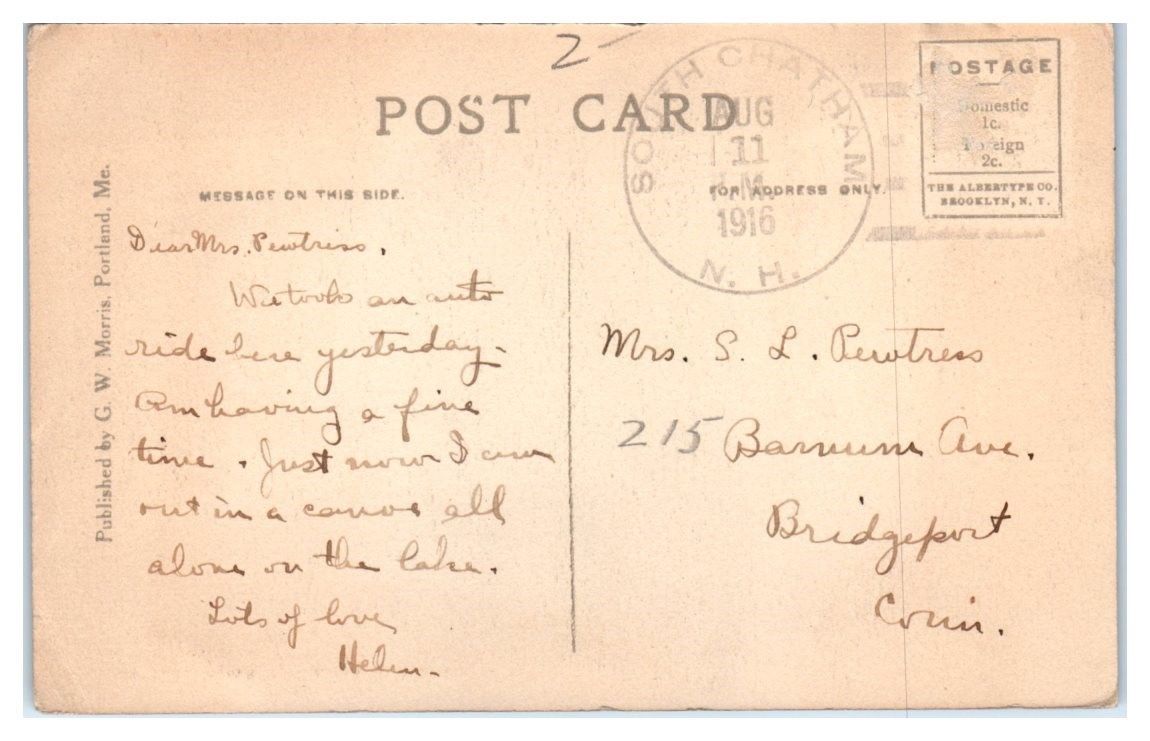 2-
POST CARD
SOUTH CHATHAM
AUG
11
M.
1916
N. H.
POSTAGE
Domestic
1c.
Foreign
2c.
THE ALBERTYPE CO.
BROOKLYN, N. Y.
MESSAGE ON THIS SIDE.
FOR ADDRESS ONLY.
Published by G. W. Morris, Portland, Me.
Dear Mrs. Pewtress,
We took an auto
ride here yesterday.
Am having a fine
time. Just now I am
out in a canoe all
alone on the lake.
Lots of love
Helen.
Mrs. S. L. Pewtress
215 Barnum Ave.
Bridgeport
Conn.